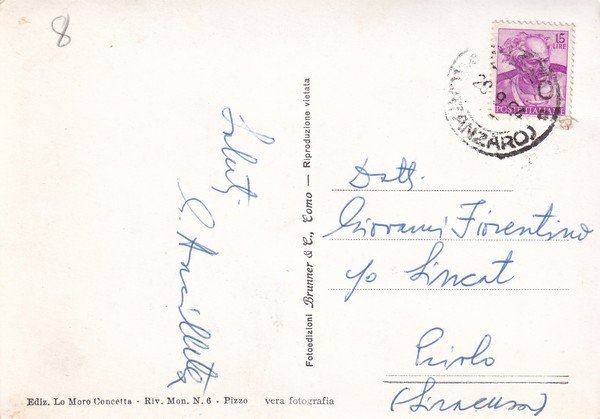 8
15
LIRE
POSTE ITALIANE
(CATANZARO)
Saluti
Dott.
Giovanni Fiorentino
c/o Sincat
Priolo
(Siracusa)
Fotoedizioni Brunner & C., Como — Riproduzione vietata
Ediz. Lo Moro Concetta - Riv. Mon. N. 6 - Pizzo vera fotografia